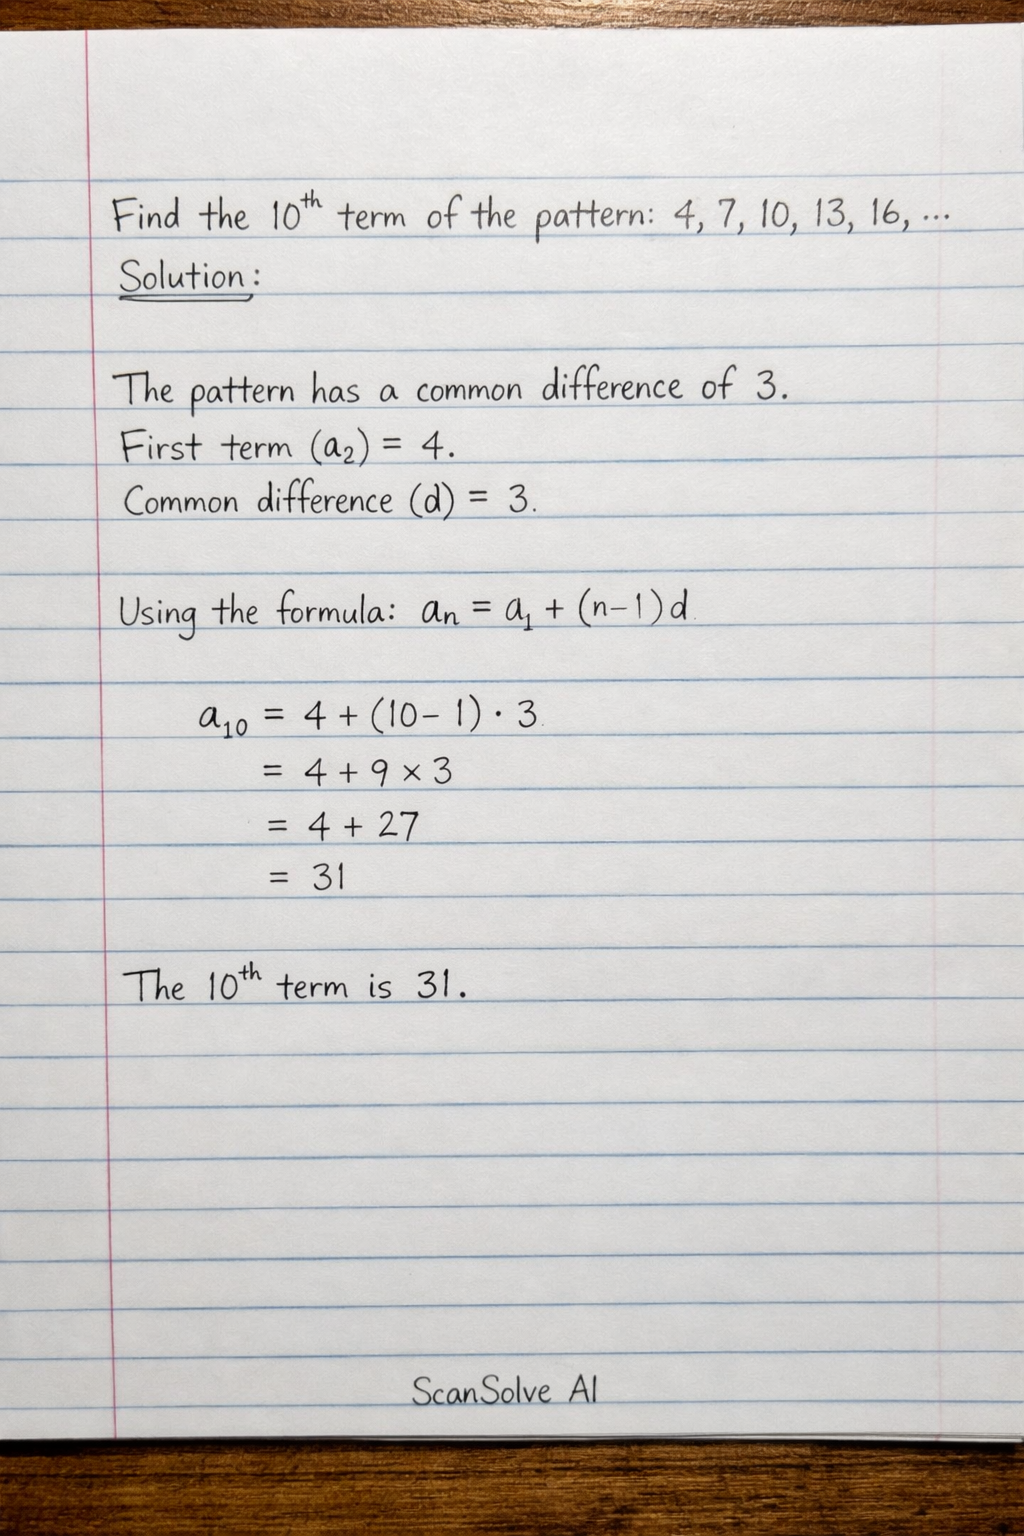 Find the 10th term of the pattern: 4, 7, 10, 13, 16, ...
Solution:
The pattern has a common difference of 3.
First term (a₂) = 4.
Common difference (d) = 3.
Using the formula: aₙ = a₁ + (n-1)d
a₁₀ = 4 + (10-1) · 3
= 4 + 9 × 3
= 4 + 27
= 31
The 10th term is 31.
ScanSolve AI